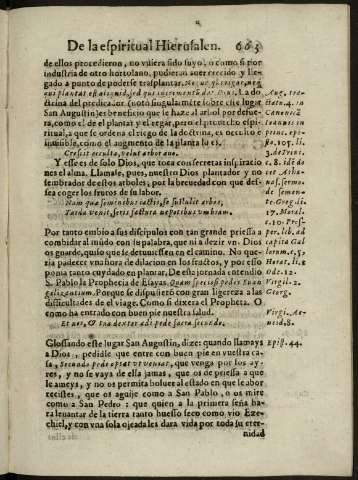 De la espiritual Hierusalen. 603
de ellos procedieron, no viuiera sido suyo, o como si por
industria de otro hortolano, pudieran auer crecido y lle-
gado a punto de poderse trasplantar.
La do-
ctrina del predicador (noto singularmẽte sobre este lugar
San Augustin) es beneficio que se haze al arbol por defue-
ra, como el de plantar y el regar, pero el prouecho espi-
ritual, a que se ordena el riego de la doctrina, es oculto e
inuisible, como el augmento de la planta lo es.
Crescit occulto, velut arbor auo.
Y esse es de solo Dios, que toca con secretas inspiracio
nes el alma. Llamase, pues, nuestro Dios plantador y no
sembrador destos arboles, por la breuedad con que des-
sea coger los frutos de su labor.
Nam quæ seminibus iactis, se sustulit arbos,
Tarda venit, seris factura nepotibus vmbram.
Por tanto embio a sus discipulos con tan grande priessa a
combidar al mũdo con su palabra, que ni a dezir vn. Dios
os guarde, quiso que se detuuiessen en el camino. No que-
ria padecer vna hora de dilacion en los frutos, y por esso
ponia tanto cuydado en plantar. De esta jornada entendio
S. Pablo la Prophecia de Esayas. Quam speciosi pedes Euan
gelizantium. Porque se dispusierõ con gran ligereza a las
difficultades de el viage. Como si dixera el Propheta. O
como ha entrado con buen pie nuestra salud.
Et nos, & tua dexter adi pede sacra secundo.
Glossando este lugar San Augustin, dize: quando llamays
a Dios, pedidle que entre con buen pie en vuestra ca-
sa, que venga por los ay-
res, y no se vaya de ella jamas, que os de priessa a que
le ameys, y no os permita boluer al estado en que le abor
recistes, que os aguije como a San Pablo, o os mire
como a San Pedro: que quien a la primera seña ha-
ra leuantar de la tierra tanto huesso seco como vio Eze-
chiel, y con vna sola ojeada les dara vida por toda su eter-
nidad
Aug. tra-
ctatu. 4. in
Ioannis in
3. de Trini.
c. 8. idẽ do
cet Atha-
nas. sermo-
de semen-
te. Greg. di
17. Moral.
per. lib. ad
capita Gal
Horat. li. 1
Ode. 12.
Virgil. 2.
Georg.
Virgi. Ae-
neid. 8.
Epist. 44.